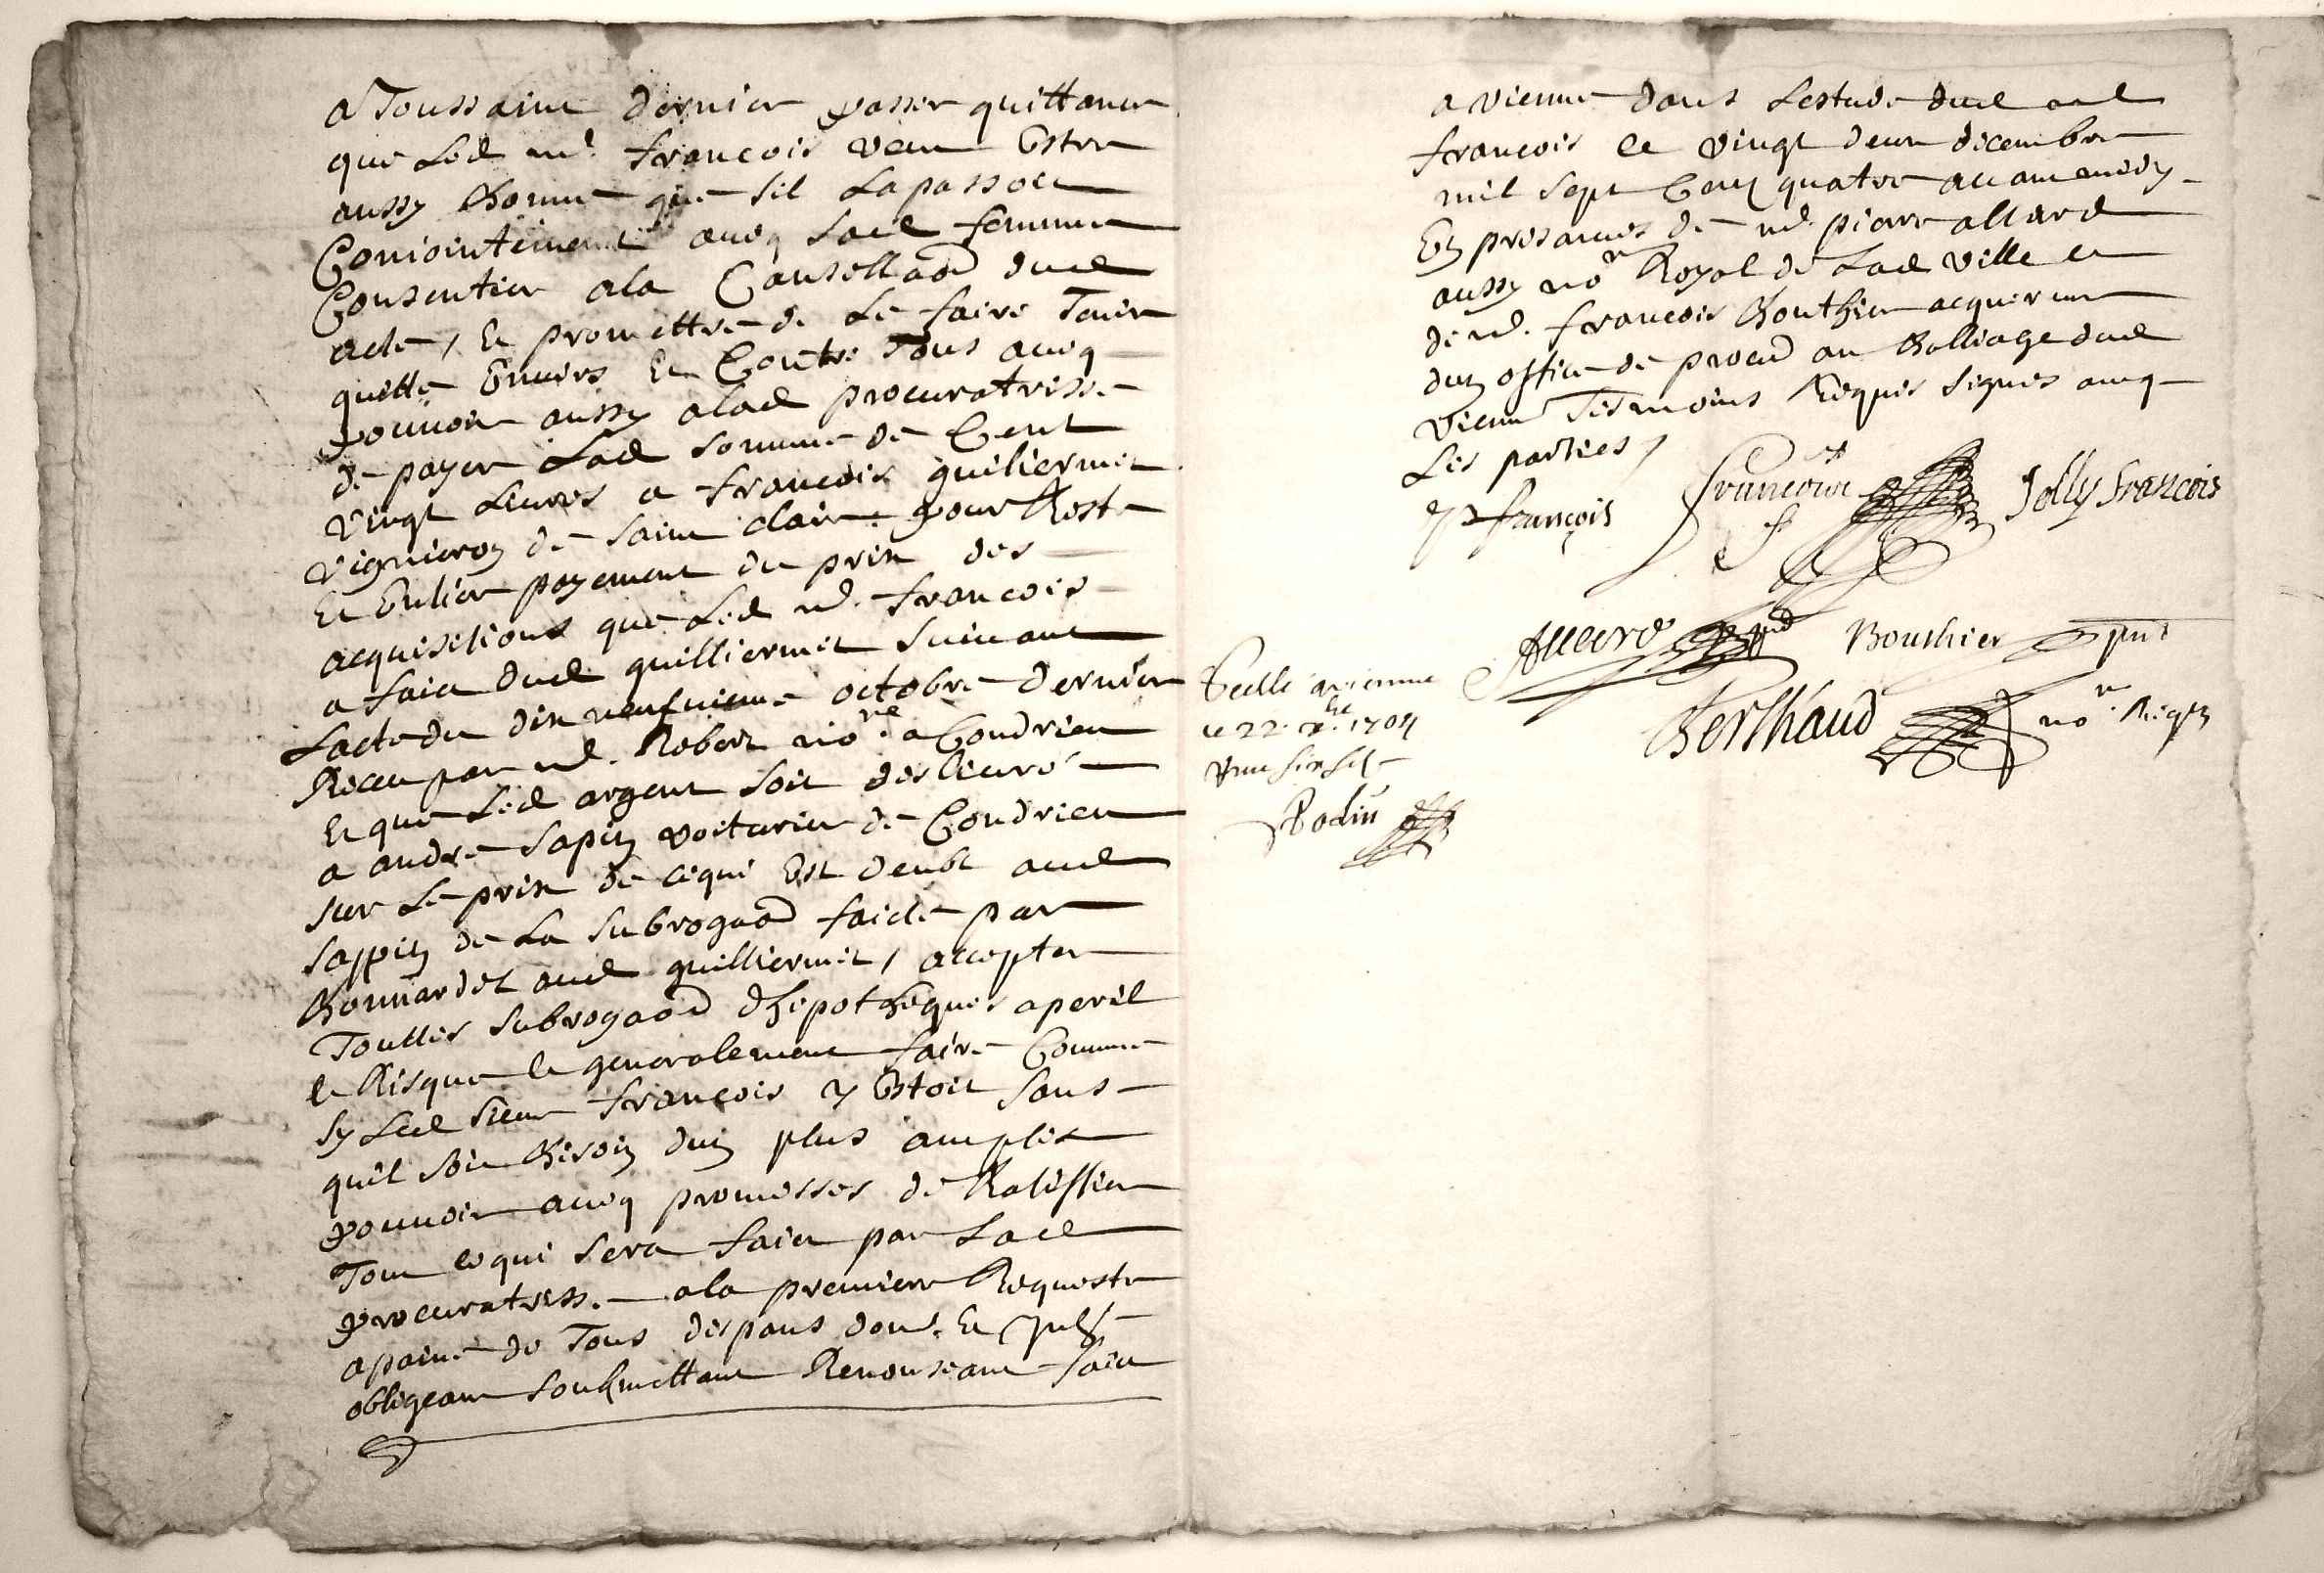 a Toussaint dernier passer quittance
que led md. francois veut Estre
aussy bonne que sil la passoit
Conjointement aveq lad femme
Consentir a la Cansellaõn dud
acte, Et promettre de le faire Tenir
quitte Envers Et Contre Tous aveq
pouvoir aussy a lad procuratrisse
de payer Lad somme de Cent
vingt Livres a francois guiliermet
vigneron de saint clair pour Reste
Et Entier payement du prix des
acquisitions que Led md. francois
a faict dud guilliermet suivant
Lacte du dix neufvieme octobre dernier
Receu par md. Robert nore a Condrieu
Et que Led argent soit deslivré
a andre sapin voiturier de Condrieu
sur Le prix de cequi Est deubt aud
sappin de La subrogaõn faicte par
bonnardet aud guilliermet, accepter
Touttes subrogaõn dhipotheques a peril
et Risque et generalement faire Comme
sy Led sieur francois y Estoit sans
quil soit besoin dun plus amples
pouvoir aveq promesses de Ratiffier
Tout cequi sera faict par Lad
procuratrisse a la premiere Requeste
a peine de Tous despans dom. Et
obligeant soubmettant Renonseant faict
a vienne dans Lestude dud md
francois le vingt deux decembre
mil sept Cent quatre avant midy
En presances de md. pierre allard
aussy nore Royal de Lad ville et
de md. francois bouthier acquereur
dun office de procur au balliage dud
vienne Tesmoins Requis signes aveq
Les parties,
francois
francoise
Jolly francois
Allard pnt
Bouthier pnt
Berthaud nore Reqs
Scellé a vienne
le 22. xbre 1704
Bodin